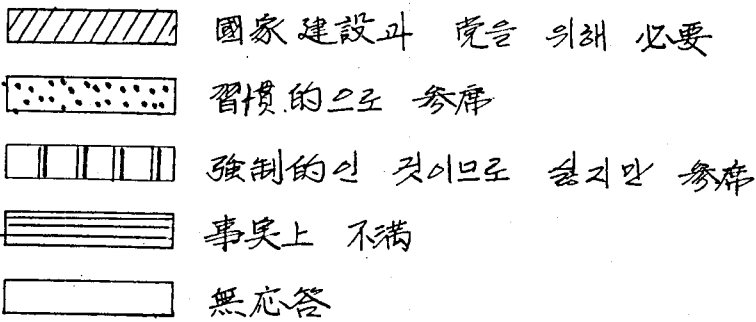 國家建設과 党을 위해 必要
習慣的으로 參席
強制的인 것이므로 싫지만 參席
事実上 不満
無応答